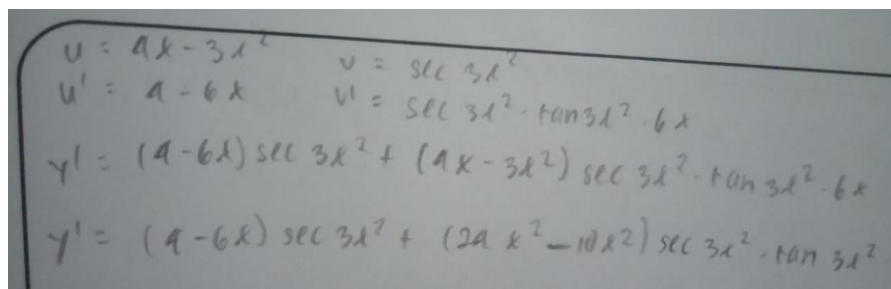 u = 4x - 3x² v = sec 3x²
u' = 4 - 6x v' = sec 3x² · tan 3x² · 6x
y' = (4 - 6x) sec 3x² + (4x - 3x²) sec 3x² · tan 3x² · 6x
y' = (4 - 6x) sec 3x² + (24 x² - 18x²) sec 3x² · tan 3x²